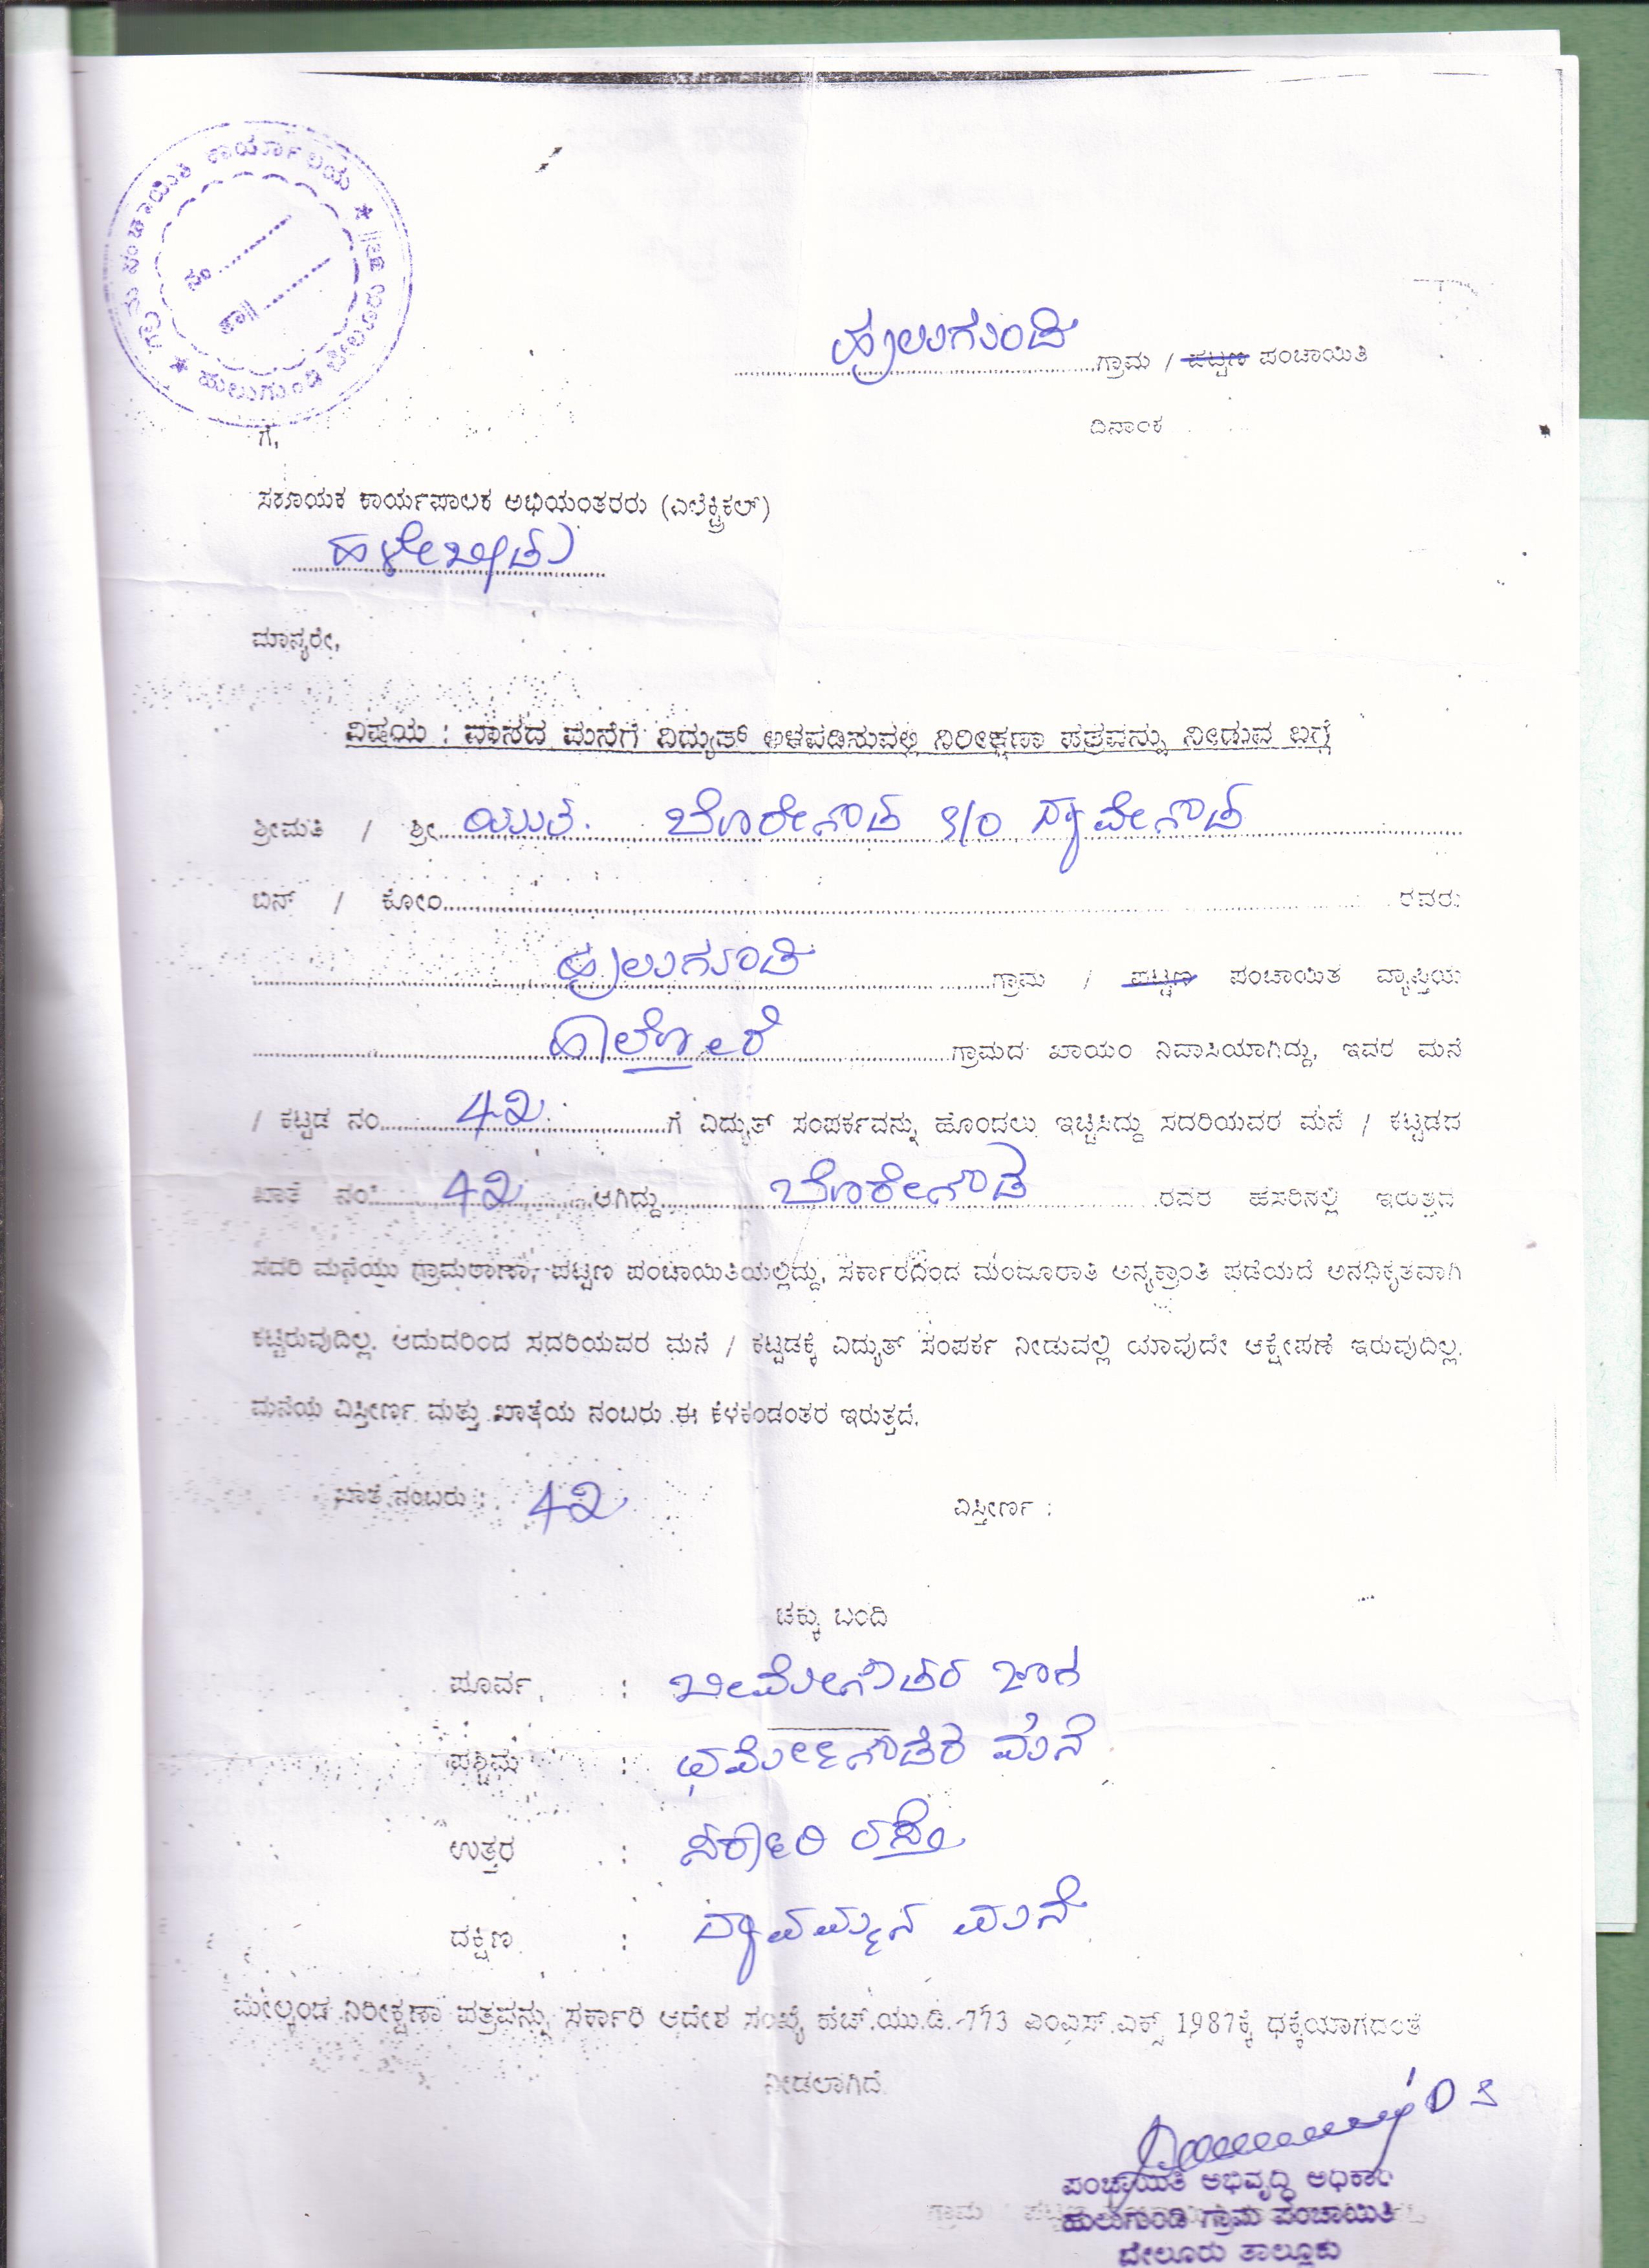 ಗ್ರಾಮ ಪಂಚಾಯಿತಿ ಕಾರ್ಯಾಲಯ ★ ಹುಲುಗುಂಡಿ ಬೇಲೂರು ತಾ|| ★
ನಂ
ತಾ||
ಹುಲುಗುಂಡಿ ಗ್ರಾಮ / ಪಟ್ಟಣ ಪಂಚಾಯಿತಿ
ದಿನಾಂಕ
ಗೆ,
ಸಹಾಯಕ ಕಾರ್ಯಪಾಲಕ ಅಭಿಯಂತರರು (ಎಲೆಕ್ಟ್ರಿಕಲ್)
ಹಳೇಬೀಡು
ಮಾನ್ಯರೇ,
ವಿಷಯ : ವಾಸದ ಮನೆಗೆ ವಿದ್ಯುತ್ ಅಳವಡಿಸುವಲ್ಲಿ ನಿರೀಕ್ಷಣಾ ಪತ್ರವನ್ನು ನೀಡುವ ಬಗ್ಗೆ
ಶ್ರೀಮತಿ / ಶ್ರೀ ಯುತ. ಬೋರೇಗೌಡ S/O ದ್ಯಾವೇಗೌಡ
ಬಿನ್ / ಕೋಂ ರವರು
ಹುಲುಗುಂಡಿ ಗ್ರಾಮ / ಪಟ್ಟಣ ಪಂಚಾಯಿತಿ ವ್ಯಾಪ್ತಿಯ
ಗ್ರಾಮದ ಖಾಯಂ ನಿವಾಸಿಯಾಗಿದ್ದು, ಇವರ ಮನೆ
/ ಕಟ್ಟಡ ನಂ 42 ಗೆ ವಿದ್ಯುತ್ ಸಂಪರ್ಕವನ್ನು ಹೊಂದಲು ಇಚ್ಚಿಸಿದ್ದು ಸದರಿಯವರ ಮನೆ / ಕಟ್ಟಡದ
ಖಾತೆ ನಂ 42 ಆಗಿದ್ದು ಬೋರೇಗೌಡ ರವರ ಹೆಸರಿನಲ್ಲಿ ಇರುತ್ತದೆ
ಸದರಿ ಮನೆಯು ಗ್ರಾಮಠಾಣಾ, ಪಟ್ಟಣ ಪಂಚಾಯಿತಿಯಲ್ಲಿದ್ದು, ಸರ್ಕಾರದಿಂದ ಮಂಜೂರಾತಿ ಅನ್ಯಕ್ರಾಂತಿ ಪಡೆಯದೆ ಅನಧಿಕೃತವಾಗಿ
ಕಟ್ಟಿರುವುದಿಲ್ಲ. ಆದುದರಿಂದ ಸದರಿಯವರ ಮನೆ / ಕಟ್ಟಡಕ್ಕೆ ವಿದ್ಯುತ್ ಸಂಪರ್ಕ ನೀಡುವಲ್ಲಿ ಯಾವುದೇ ಆಕ್ಷೇಪಣೆ ಇರುವುದಿಲ್ಲ.
ಮನೆಯ ವಿಸ್ತೀರ್ಣ ಮತ್ತು ಖಾತೆಯ ನಂಬರು ಈ ಕೆಳಕಂಡಂತರ ಇರುತ್ತದೆ.
ಖಾತೆ ನಂಬರು : 42 ವಿಸ್ತೀರ್ಣ :
ಚಕ್ಕು ಬಂದಿ
ಪೂರ್ವ : ಜಾಗ
ಪಶ್ಚಿಮ : ಧರ್ಮೇಗೌಡರ ಮನೆ
ಉತ್ತರ : ಸರ್ಕಾರಿ ರಸ್ತೆ
ದಕ್ಷಿಣ : ದ್ಯಾವಮ್ಮನ ಮನೆ
ಮೇಲ್ಕಂಡ ನಿರೀಕ್ಷಣಾ ಪತ್ರವನ್ನು ಸರ್ಕಾರಿ ಆದೇಶ ಸಂಖ್ಯೆ ಹೆಚ್.ಯು.ಡಿ.-773 ಎಂಎಸ್.ಎಕ್ಸ್ 1987ಕ್ಕೆ ಧಕ್ಕೆಯಾಗದಂತೆ
ನೀಡಲಾಗಿದೆ
ಪಂಚಾಯಿತಿ ಅಭಿವೃದ್ಧಿ ಅಧಿಕಾರಿ
ಹುಲುಗುಂಡಿ ಗ್ರಾಮ ಪಂಚಾಯಿತಿ
ಬೇಲೂರು ತಾಲ್ಲೂಕು